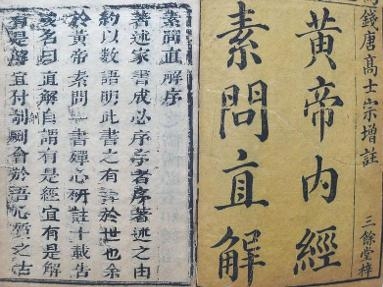 錢唐高士宗增註
黃帝內經
素問直解
三餘堂梓
素問直解序
著述家書成必序序者序著述之由
約以數語明此書之有於世也余
於黃帝素問一書殫心研註十載告
竣名曰直解自謂有是經宜有是解
有是解宜付剞劂會於吾心之古